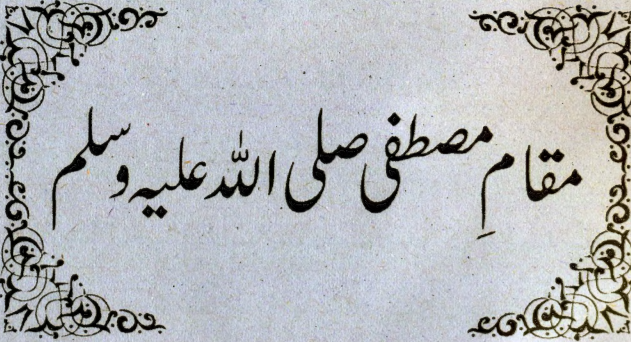 مقامِ مصطفی صلی اللہ علیہ وسلم